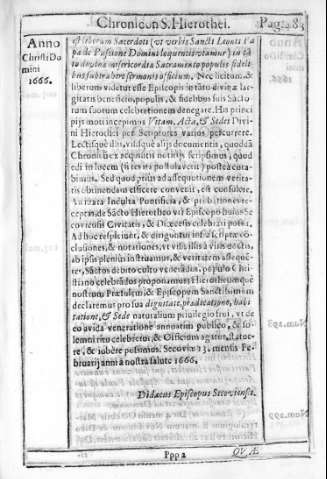 Chronicon S. Hierothei. Pag. 483
Anno
Christi Do
mini
1666.
est liberum Sacerdoti (ut verbis Sancti Leonis Pa
pæ de Passione Domini loquentis utamur) in tã
to divinæ misericordiæ Sacramento populis fideli
bus subtrahere sermonis officium, Nec licitum, &
liberum videtur esse Episcopis in toto divinæ lar
gitatis beneficio, populis, & fidelibus suis Sancto
rum suorum celebrationem denegare. His princi
pijs moti incepimus Vitam, Acta, & Sedes Divi
ni Hierothei per Scripturas varias percurrere.
Lectisque
Chronista ex requisitis notitijs scripsimus, quod
edi in lucem (si res ita postulaverit) postea cura
bimus. Sed quod prius ad assequutionem verita
tis obtinendam efficere convenit, est consulere,
Indulta Pontificia, & probationes re
ceptas de Sācto Hierotheo ut Episcopo huius Se
coviensis Civitatis, & Diœcesis celebrari possit.
Ad hæc respiciunt, & diriguntur infra scriptæ cō
clusiones, & notationes, ut visis illis à viris doctis,
ab ipsis plenius instruamur, & veritatem asseque
ter, Sāctos debito cultu venerādos, populo Chri
stiano celebrādos proponamus; Hierotheumque
nostrum Præsulem, & Episcopum Sanctissimum
declaremus prorsus dignitate, prædicatione, habi
tatione, & Sede naturalium privilegio frui, ut de
eo avida veneratione annuatim publico, & so
lemni ritu celebretur, & Officium agatur, statue
re, & iubere possimus. Secoviæ 13. mensis Fe
bruarij anni à nostra salute 1666,
Didacus Episcopus Secoviensis.
Ppp 2
QUÆ